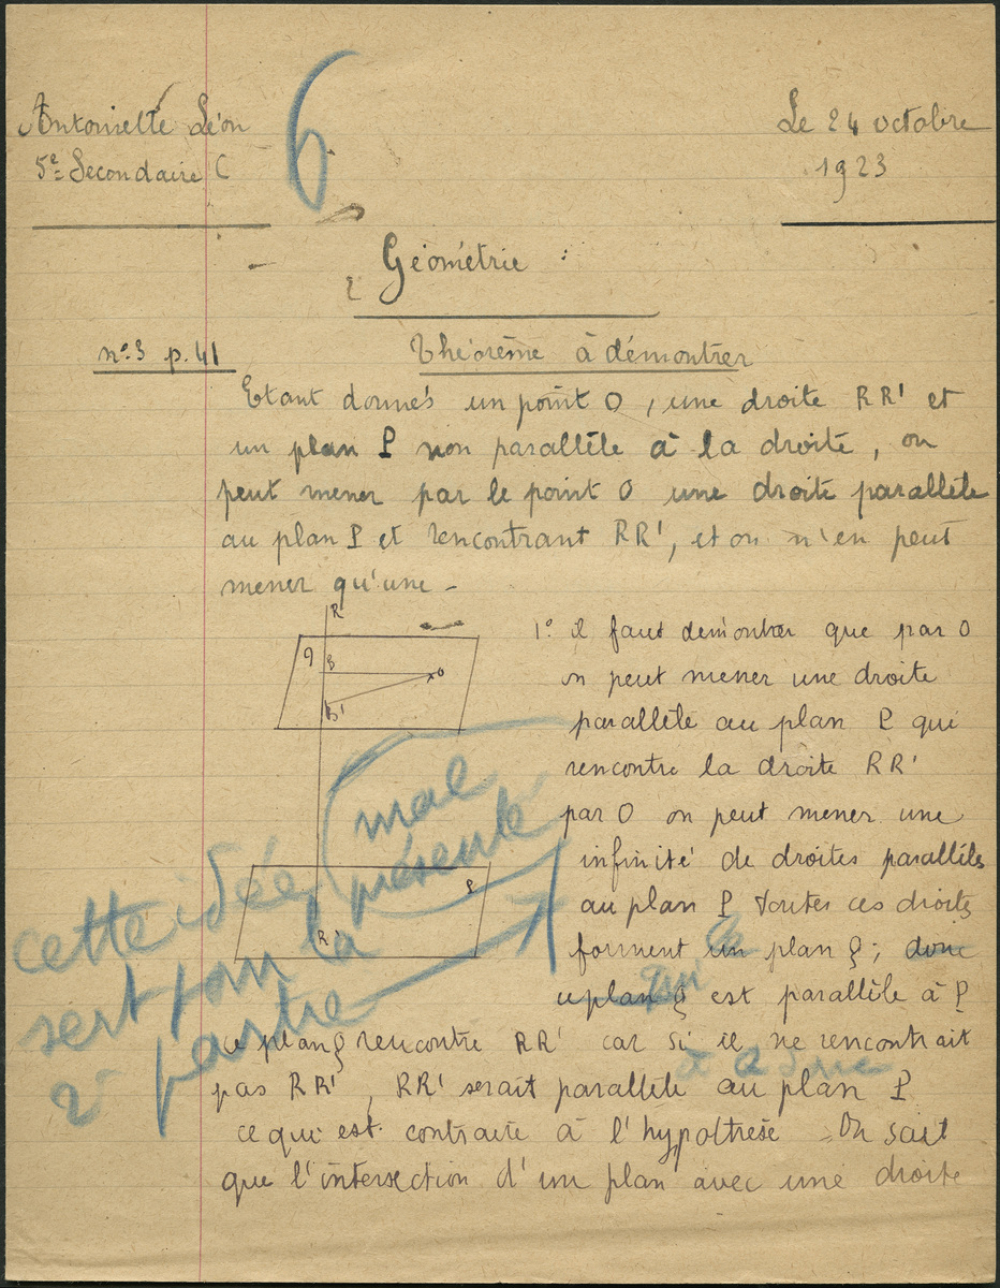 Antoinette Léon
5e Secondaire C
6
Le 24 octobre
1923
Géométrie :
n°3 p.41
Théorème à démontrer
Etant donnés un point O, une droite RR' et
un plan P non parallèle à la droite, on
peut mener par le point O une droite parallèle
au plan P et rencontrant RR', et on n'en peut
mener qu'une -
R
Q
B
O
B'
P
R'
1° il faut démontrer que par O
on peut mener une droite
parallèle au plan P qui
rencontre la droite RR'
par O on peut mener une
infinité de droites parallèles
au plan P toutes ces droites
forment un plan Q; donc
ce plan Q est parallèle à P
Ce plan Q rencontre RR' car si il ne rencontrait
pas RR', RR' serait parallèle au plan P
ce qui est contraire à l'hypothèse - On sait
que l'intersection d'un plan avec une droite
mal
présenté
cette idée
sert pour la
2e partie
qui